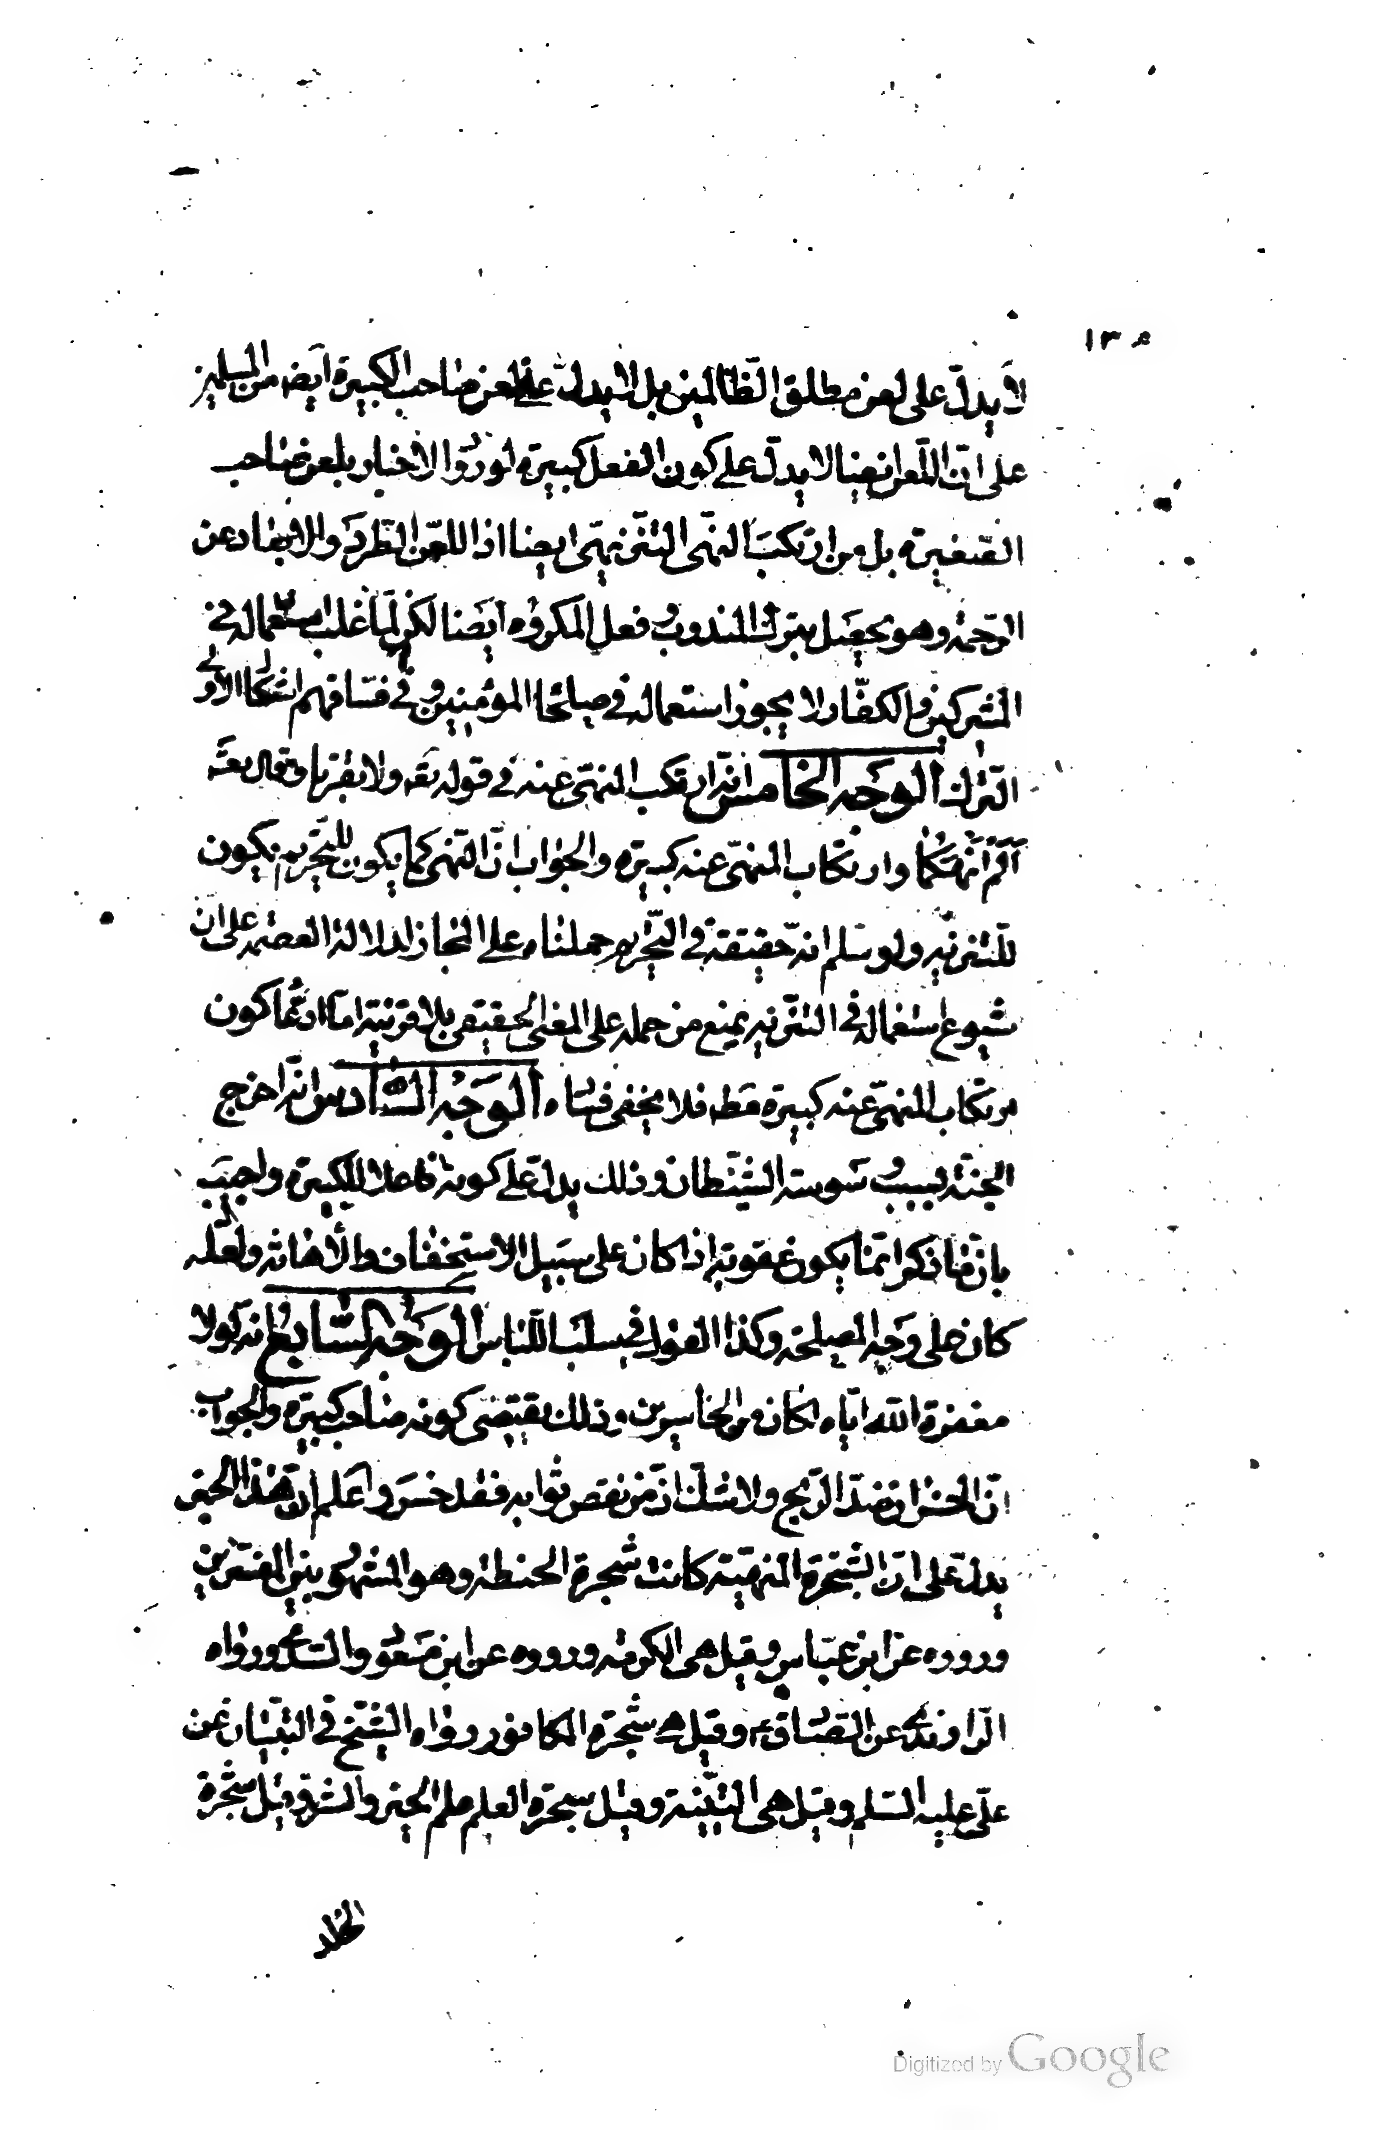 ١٣٥
لا يدلّ على لعن مطلق الظالمين بل لا يدلّ على لعن صاحب الكبيرة ايضا من المسلمين
على انّ اللّعن ايضا لا يدلّ على كون الفعل كبيرة لورود الاخبار بلعن صاحب
الصّغيرة بل من ارتكب النهى التنزيهى ايضا اذ اللعن الطّرد والابعاد عن
الرّحمة وهو يحصل بترك المندوب وفعل المكروه ايضا لكن لمّا غلب استعماله فى
المشركين والكفّار لا يجوز استعماله فى صلحاء المؤمنين وفى فسّاقهم اشكال الاولى
التّرك الوجه الخامس انّه ارتكب المنهىّ عنه فى قوله تعه ولا تقربا وقال تعه
الم انهكما وارتكاب المنهىّ عنه كبيرة والجواب انّ النّهى كما يكون للتّحريم يكون
للتنزيه ولو سلم انه حقيقة فى التّحريم حملناه على المجاز لدلالة العصمة على ان
شيوع استعماله فى التنزيه يمنع من حمله على المعنى الحقيقى بلا قرينة امّا ادّعاء كون
مرتكاب المنهىّ عنه كبيرة مطه فلا يخفى فساده الوجه السّادس انّه اخرج
الجنّة بسبب وسوسة الشّيطان وذلك يدلّ على كونه فاعلا للكبيرة واجيب
بانّ ما ذكر انّما يكون عقوبة اذا كان على سبيل الاستخفاف والاهانة ولعلّه
كان على وجه المصلحة وكذا القول فى سلب اللّباس الوجه السّابع انه لولا
مغفرة الله ايّاه لكان من الخاسرين وذلك يقتضى كونه صاحب كبيرة والجواب
انّ الخسران ضدّ الرّبح ولا شكّ انّ من نقص ثوابه فقد خسر واعلم ان هذا الخبر
يدلّ على انّ الشّجرة المنهيّة كانت شجرة الحنطة وهو المشهور بين المفسّرين
ورووه عن ابن عبّاس وقيل هى الكرمة ورووه عن ابن مسعود والسّدى ورواه
الرّاوندى عن الصّادق ع وقيل هى شجرة الكافور رواه الشّيخ فى التّبيان عن
علىّ عليه السّلم وقيل هى التّينة وقيل شجرة العلم علم الخير والشر وقيل شجرة
الخلد
Digitized by Google